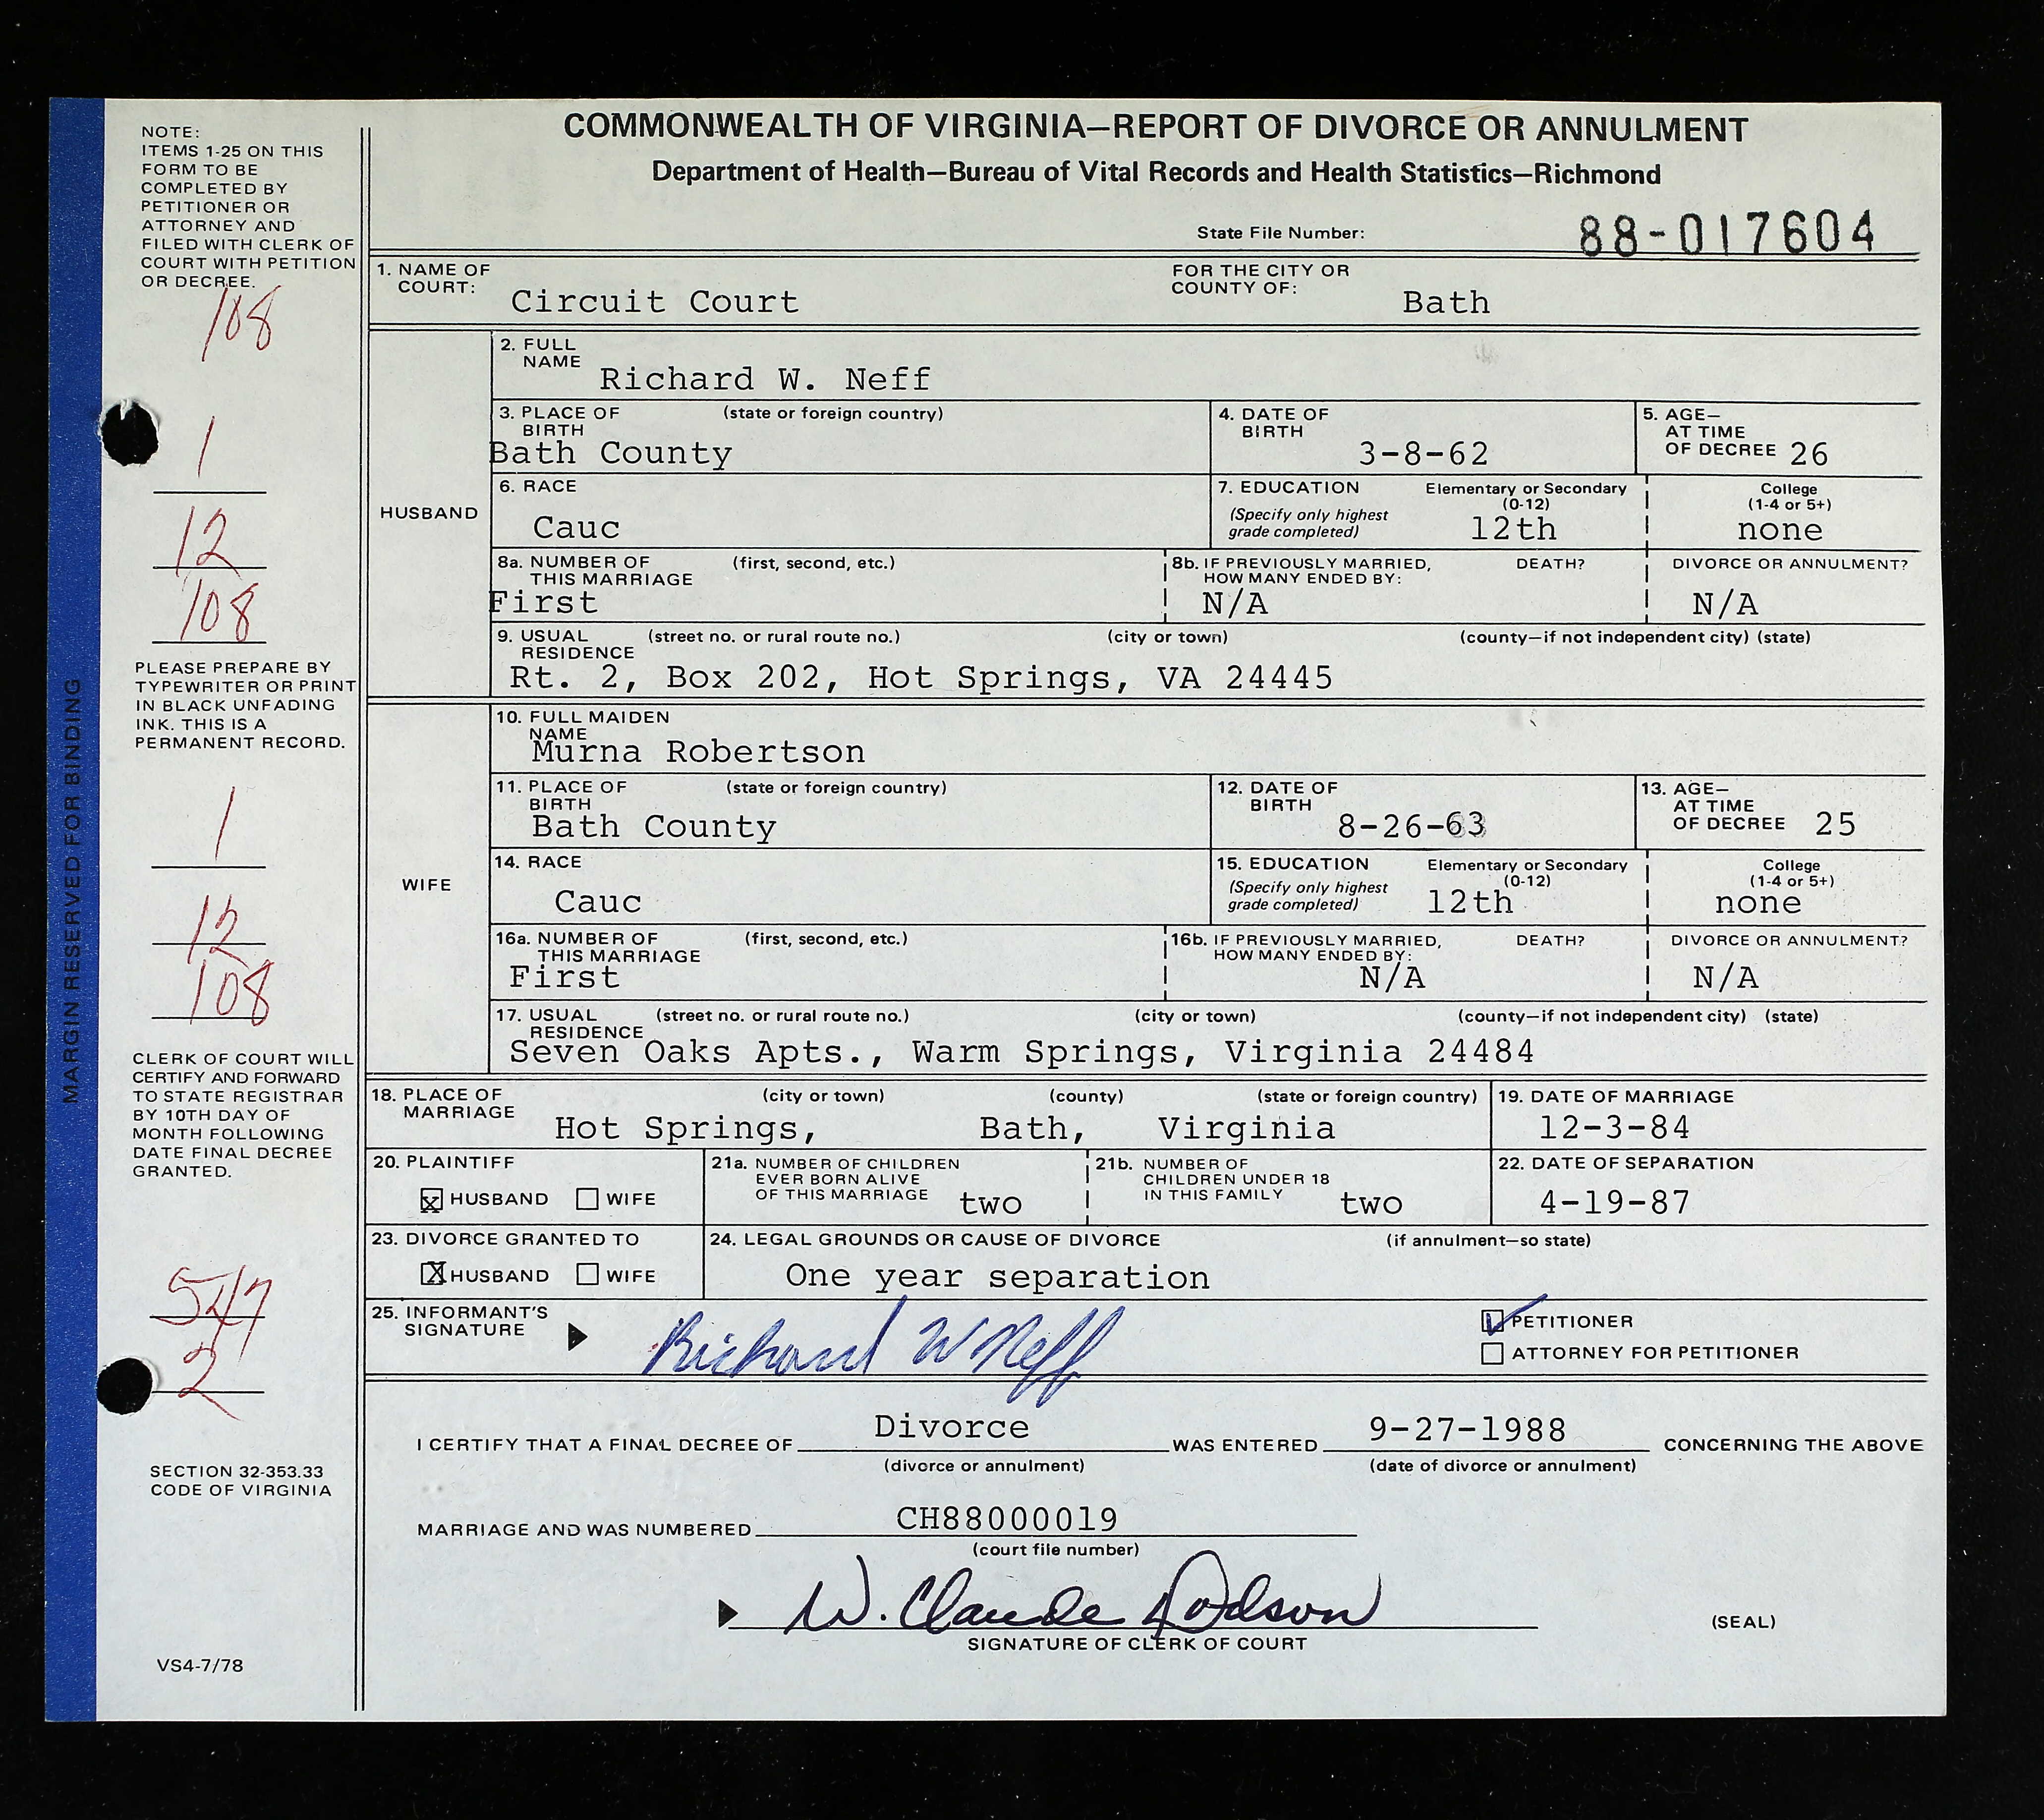 COMMONWEALTH OF VIRGINIA—REPORT OF DIVORCE OR ANNULMENT
Department of Health—Bureau of Vital Records and Health Statistics—Richmond
State File Number: 88-017604
NOTE:
ITEMS 1-25 ON THIS
FORM TO BE
COMPLETED BY
PETITIONER OR
ATTORNEY AND
FILED WITH CLERK OF
COURT WITH PETITION
OR DECREE.
108
1
12
108
PLEASE PREPARE BY
TYPEWRITER OR PRINT
IN BLACK UNFADING
INK. THIS IS A
PERMANENT RECORD.
1
12
108
CLERK OF COURT WILL
CERTIFY AND FORWARD
TO STATE REGISTRAR
BY 10TH DAY OF
MONTH FOLLOWING
DATE FINAL DECREE
GRANTED.
547
2
SECTION 32-353.33
CODE OF VIRGINIA
VS4-7/78
MARGIN RESERVED FOR BINDING
1. NAME OF COURT: Circuit Court FOR THE CITY OR COUNTY OF: Bath
HUSBAND
2. FULL NAME Richard W. Neff
3. PLACE OF BIRTH (state or foreign country) Bath County
4. DATE OF BIRTH 3-8-62
5. AGE— AT TIME OF DECREE 26
6. RACE Cauc
7. EDUCATION (Specify only highest grade completed) Elementary or Secondary (0-12) 12th College (1-4 or 5+) none
8a. NUMBER OF THIS MARRIAGE (first, second, etc.) First
8b. IF PREVIOUSLY MARRIED, HOW MANY ENDED BY: DEATH? N/A DIVORCE OR ANNULMENT? N/A
9. USUAL RESIDENCE (street no. or rural route no.) (city or town) (county—if not independent city) (state)
Rt. 2, Box 202, Hot Springs, VA 24445
WIFE
10. FULL MAIDEN NAME Murna Robertson
11. PLACE OF BIRTH (state or foreign country) Bath County
12. DATE OF BIRTH 8-26-63
13. AGE— AT TIME OF DECREE 25
14. RACE Cauc
15. EDUCATION (Specify only highest grade completed) Elementary or Secondary (0-12) 12th College (1-4 or 5+) none
16a. NUMBER OF THIS MARRIAGE (first, second, etc.) First
16b. IF PREVIOUSLY MARRIED, HOW MANY ENDED BY: DEATH? N/A DIVORCE OR ANNULMENT? N/A
17. USUAL RESIDENCE (street no. or rural route no.) (city or town) (county—if not independent city) (state)
Seven Oaks Apts., Warm Springs, Virginia 24484
18. PLACE OF MARRIAGE (city or town) (county) (state or foreign country)
Hot Springs, Bath, Virginia
19. DATE OF MARRIAGE 12-3-84
20. PLAINTIFF x HUSBAND WIFE
21a. NUMBER OF CHILDREN EVER BORN ALIVE OF THIS MARRIAGE two
21b. NUMBER OF CHILDREN UNDER 18 IN THIS FAMILY two
22. DATE OF SEPARATION 4-19-87
23. DIVORCE GRANTED TO X HUSBAND WIFE
24. LEGAL GROUNDS OR CAUSE OF DIVORCE (if annulment—so state)
One year separation
25. INFORMANT'S SIGNATURE Richard W Neff
PETITIONER
ATTORNEY FOR PETITIONER
I CERTIFY THAT A FINAL DECREE OF Divorce WAS ENTERED 9-27-1988 CONCERNING THE ABOVE
(divorce or annulment) (date of divorce or annulment)
MARRIAGE AND WAS NUMBERED CH88000019
(court file number)
W. Claude Dodson
SIGNATURE OF CLERK OF COURT
(SEAL)